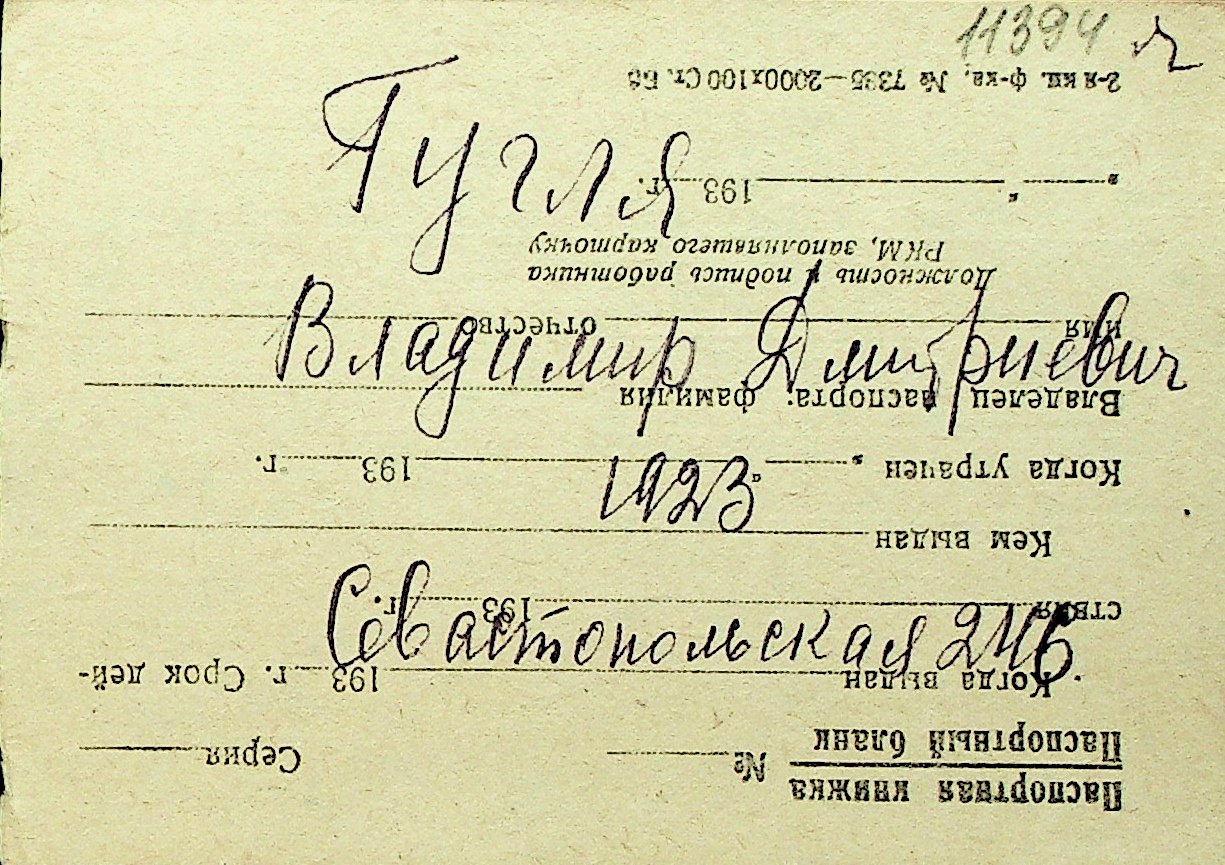 11394
Гугля
Владимир Дмитриевич
1923
Севастопольская 246
Паспортная книжка
Паспортный бланк
№ Серия
Когда выдан 193 г. Срок дей-
ствия 193 г.
Кем выдан
Когда утрачен " " 193 г.
Владелец паспорта: фамилия
имя отчество
Должность и подпись работника
РКМ, заполнявшего карточку
" " 193 г.
2-я кн. ф-ка. № 7385—2000х100 Ст.